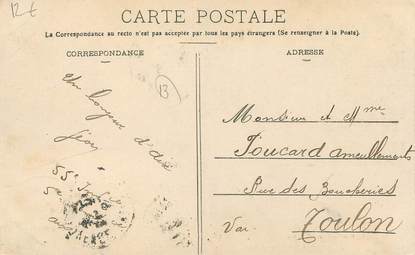 12 €
CARTE POSTALE
La Correspondance au recto n'est pas acceptée par tous les pays étrangers (Se renseigner à la Poste).
CORRESPONDANCE
ADRESSE
13
un bonjour d'
Monsieur et Mme
Foucard ameublements
Rue des Boucheries
Var Toulon
55e
5e